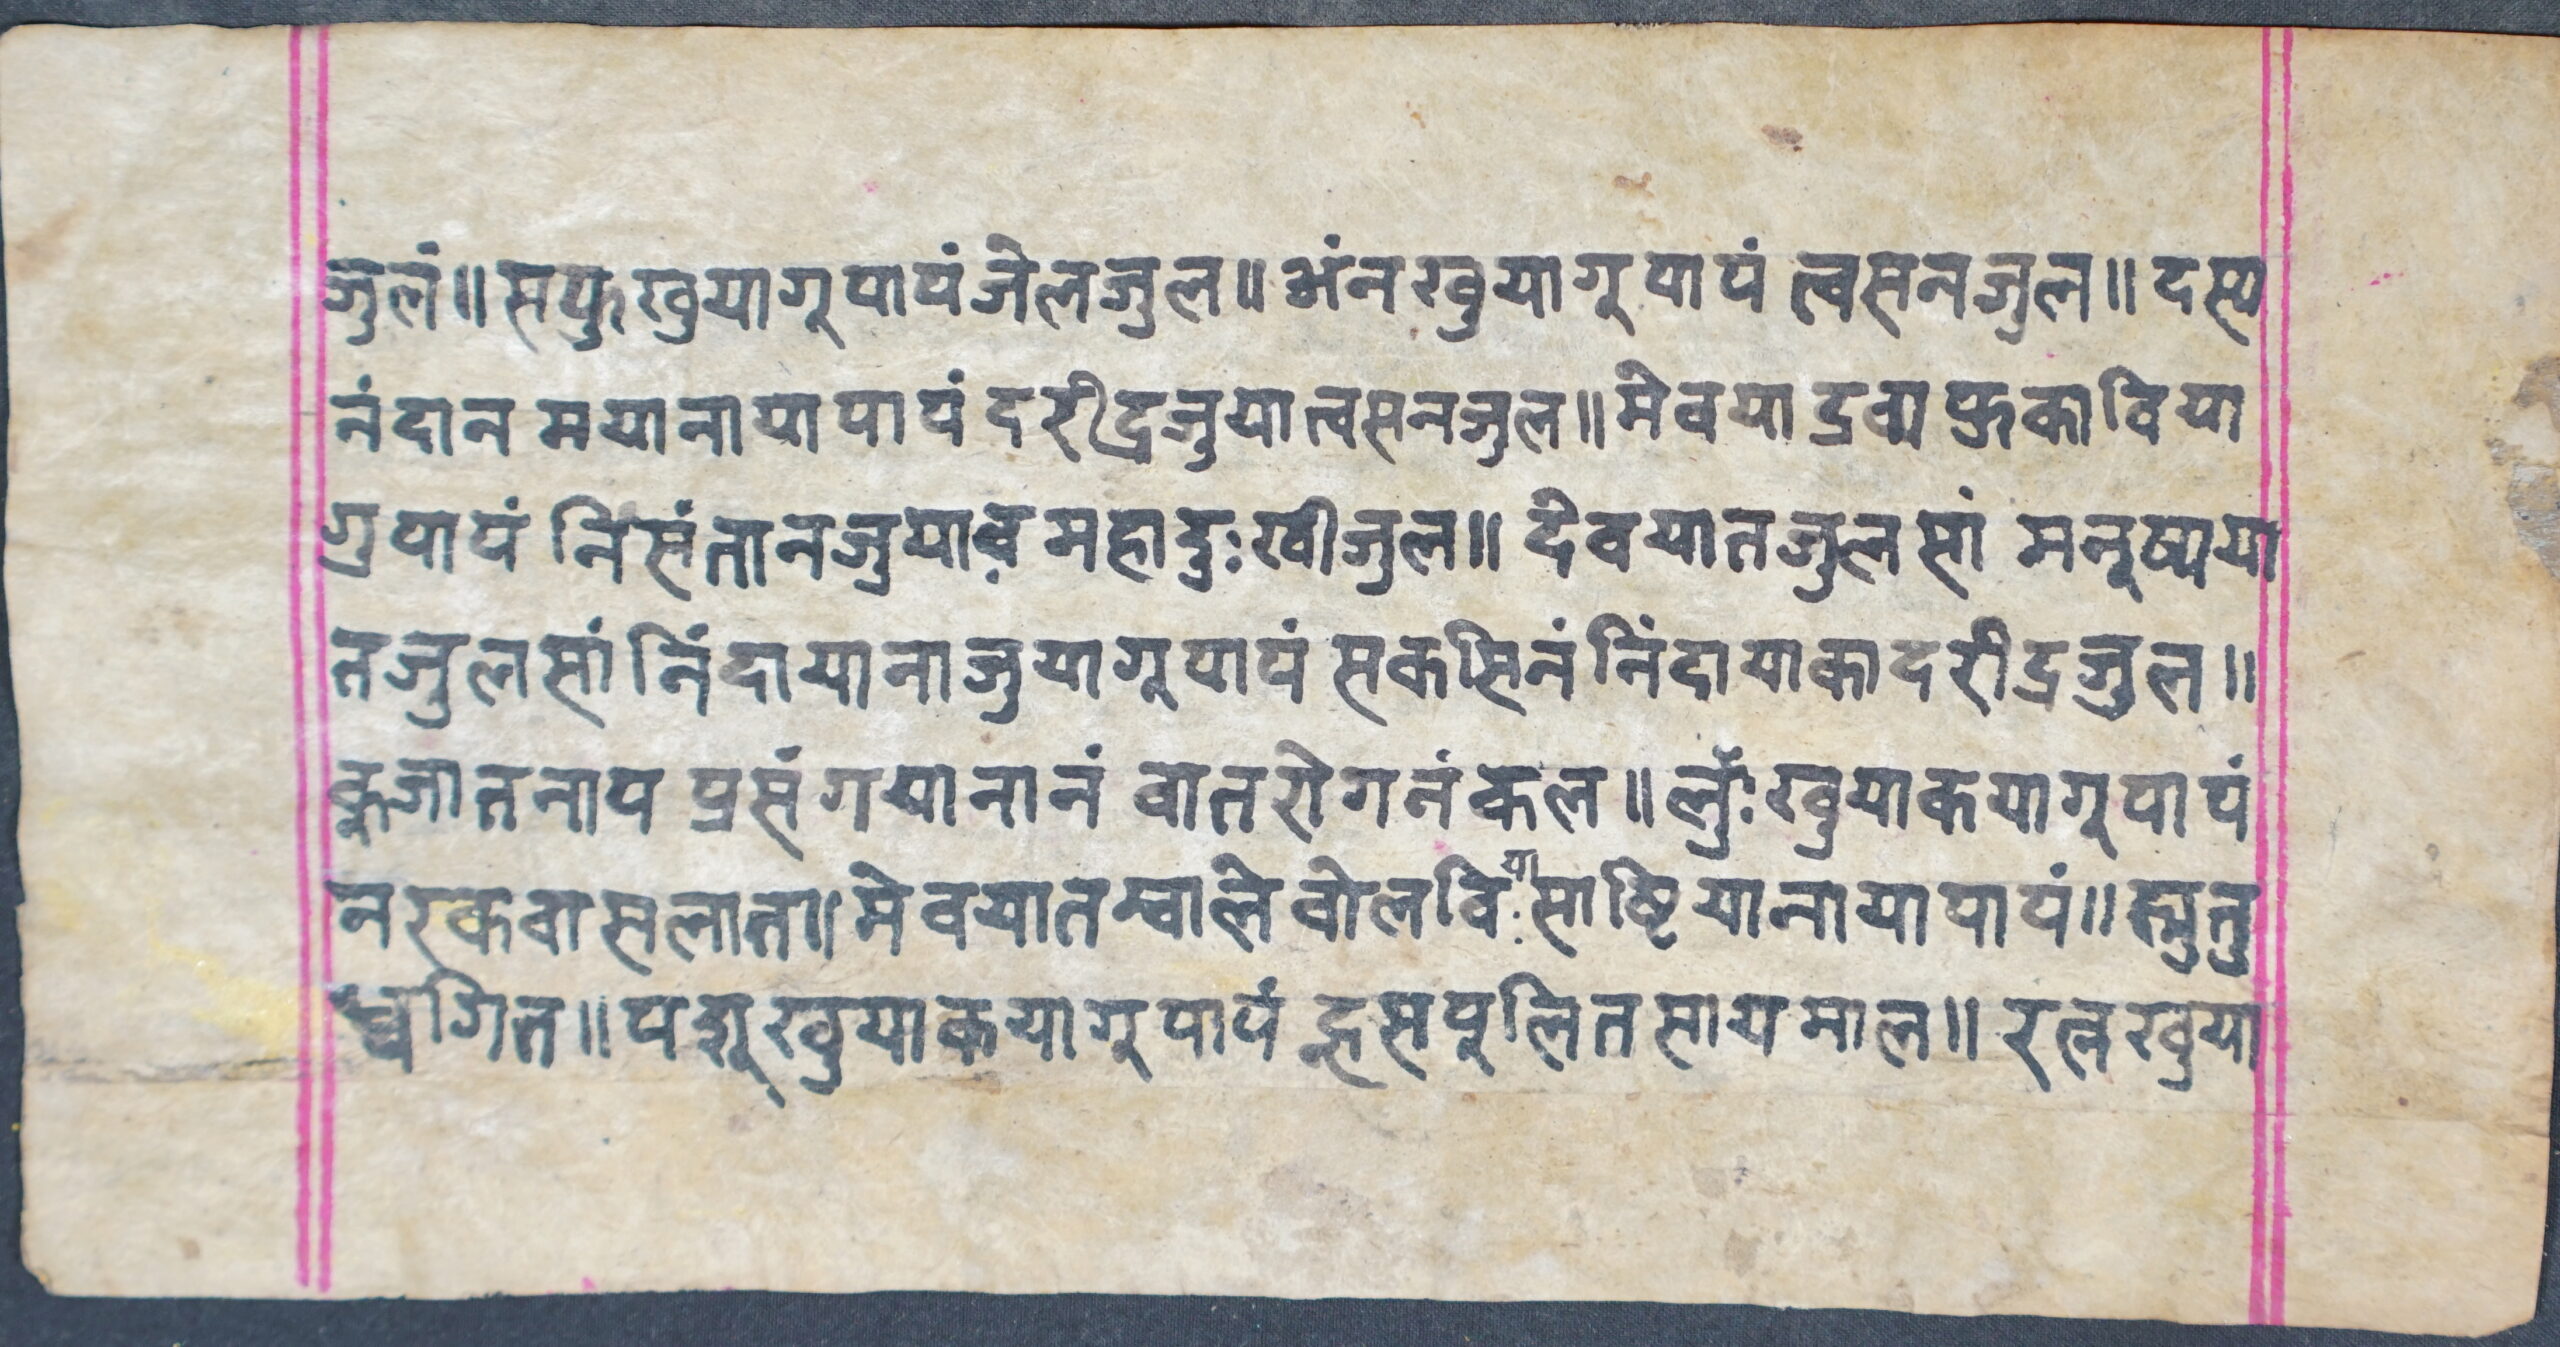 जुलं॥ सफुखुयागूपापं जेलजुल॥ अंनखुयागूपापं त्वसनजुल॥ दस्य
नंदान मयानायापापं दरीद्रजुयात्वसनजुल॥ मेवयाद्रव्य फुकाविया
गुपापं निसंतानजुयाव महादुःखीजुल॥ देवयातजुलसां मनूष्यया
तजुलसां निंदायानाजुयागूपापं सकसिनं निंदायाकादरीद्रजुल॥
कुजातनाप प्रसंगयानानं वातरोगनंकल॥ लुँःखुयाकयागूपापं
नरकवासलात॥ मेवयातम्वाले वोलवियासाष्टियानायापापं॥ ह्मुतु
ध्वगित॥ पशूखुयाकयागूपापं ह्रसपुलितसायमाल॥ रत्नखुया